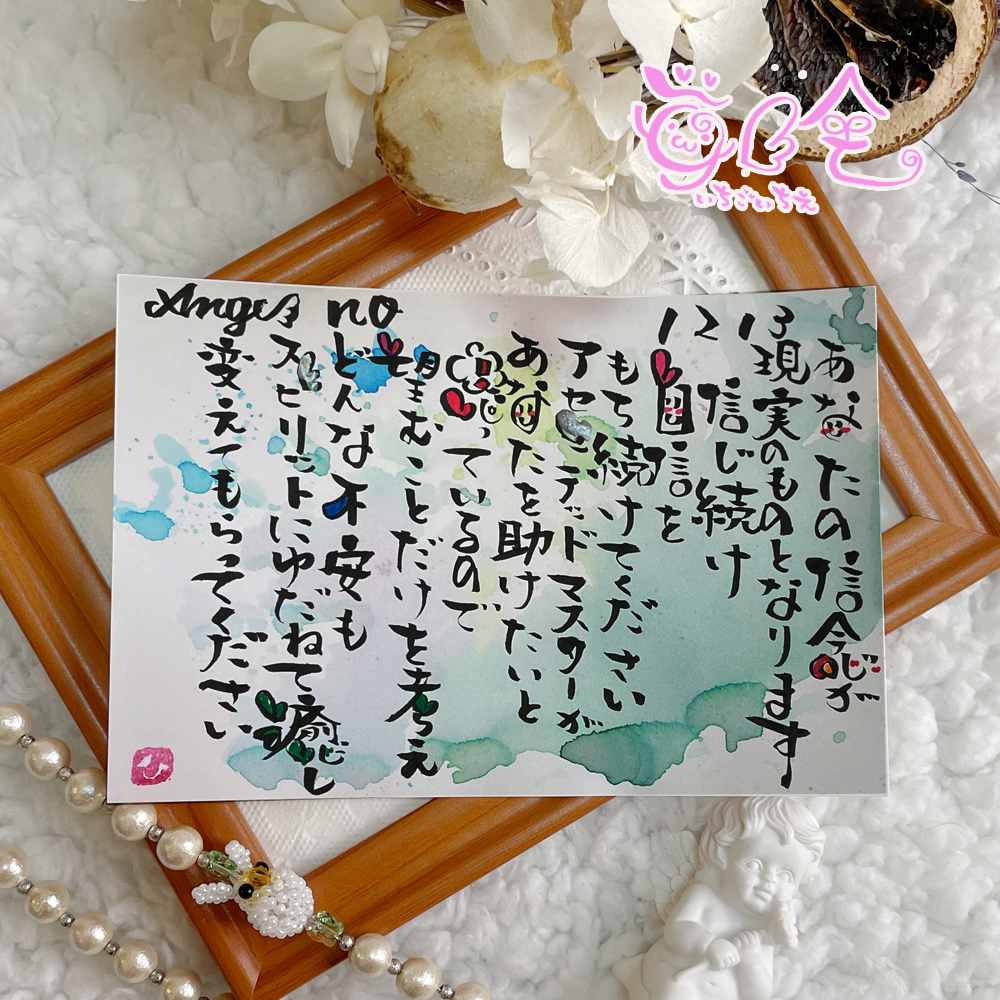 Angel no 12 13
あなたの信念が
現実のものとなります
信じ続け
自信を
もち続けてください
アセンデッドマスターが
あなたを助けたいと
思っているので
望むことだけを考え
どんな不安も
スピリットにゆだねて癒し
変えてもらってください
いちごいちえ